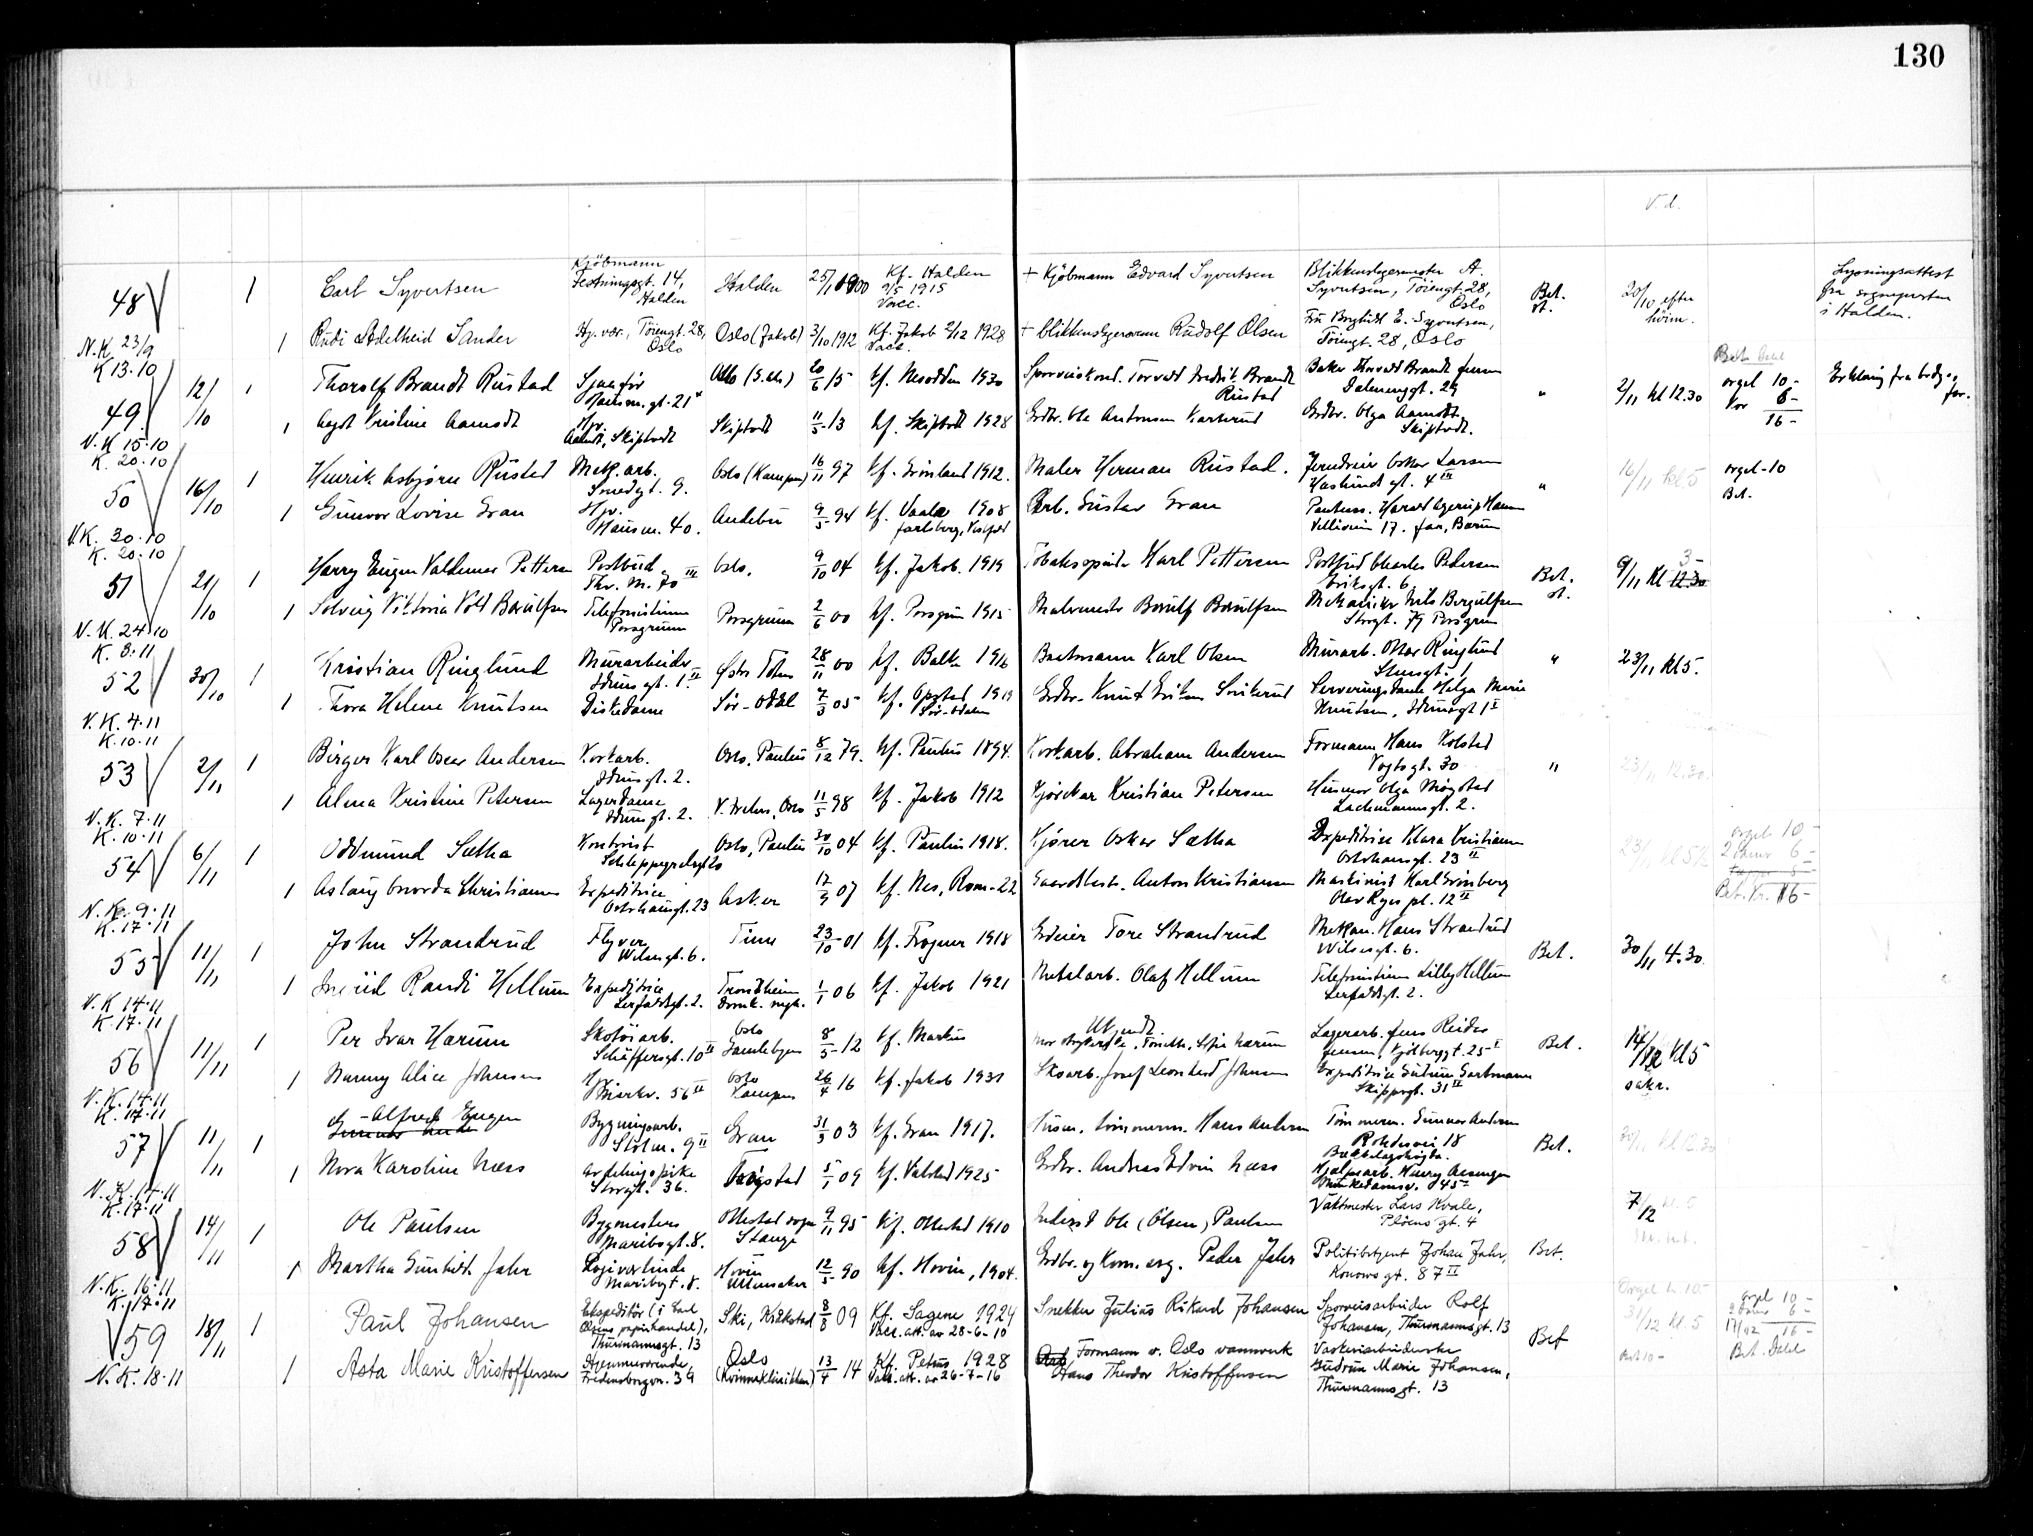 130
V.d.
48 1 Carl Syvertsen Kjøbmann Festningsgt. 14, Halden Halden 25/1 1900 Kf. Halden 9/5 1915 Vacc. + Kjøbmann Edvard Syvertsen Blikkenslagermester A. Syvertsen, Töiengt. 28, Oslo Bet. 20/10 efter höim. Lysningsattest fra sognepresten i Halden.
N.K. 23/9 1 Rudi Adelheid Sander Hj. vær., Töiengt. 28, Oslo Oslo (Jakob) 3/10 1912 Kf. Jakob 2/12 1928 Vacc. + blikkenslagersvenn Rudolf Olsen Fru Borghild E. Syvertsen, Töiengt. 28, Oslo
K 13.10
49 12/10 1 Thorolf Brandt Rustad Sjaafør Hausm. gt. 21 Oslo 20/6 15 kf. Nesodden 1930 Sporveiskond. Torvald Fredrik Brandt Rustad Baker Thorvald Brandt Jensen Dalenenggt. 29 " 2/11 kl 12.30 orgel 10.- Kor 6- 16- Erklæring fra brudg. far.
V.K 15.10 1 Aagot Kristine Aamodt Hjv. Aamdt, Skiptvedt Skiptvedt 11/5 13 kf. Skiptvedt 1928 Grdbr. Ole Antonsen Karlsrud Grdbr. Olga Aamodt, Skiptvedt.
K. 20.10
50 16/10 1 Henrik Asbjørn Rustad Mek. arb. Smedgt. 9. Oslo (Kampen) 16/11 97 kf. Grønland 1912. Maler Herman Rustad. Jerndreier Oskar Larsen Haslund gt. 4 III " 16/11 kl. 5 orgel-10 Bet.
V.K. 30.10 1 Gunvor Lovise Gran Hjv. Hausm. 40. Andebu 9/5 94 kf. Vaale 1908 Jarlsberg, Vestfold Arb. Gustav Gran Vellivein 17. Jar, Bærum
K. 20.10
51 21/10 1 Harry Eugen Valdemar Pettersen Postbud Thv. M. 70 III Oslo. 9/10 04 kf. Jakob. 1919 Tobakspinder Karl Pettersen Postbud Charles Pedersen Eriksgt. 6 Bet. 9/11 kl 12.30 3-
V.K. 24.10 1 Solveig Viktoria Vold Borulfsen Telefonistinne Porsgrunn Porsgrunn 2/6 00 kf. Porsgrun 1915 Malermester Borulf Borulfsen Mekaniker Nils Bergulfsen Storgt. 79 Porsgrun
K. 3.11
52 30/10 1 Kristian Ringlund Murarbeider Idunsgt. 1 II Østre Toten 28/11 00 kf. Balke 1916 Baatsmann Karl Olsen Murarb. Ottar Ringlund Stensgt. 1 " 23/11 kl 5.
V.K. 4.11 1 Thora Helene Knutsen Diskedame Sör-Odal 7/3 05 kf. Opstad 1919 Sör-Odalen Grdbr. Knut Eriksen Serveringsdame Helga Marie Knutsen, Idunsgt 1 I
K. 10.11
53 2/11 1 Birger Karl Oscar Andersen Korkarb. Idunsgt. 2. Oslo, Paulus 8/12 79. kf. Paulus 1894. Korkarb. Abraham Andersen Formann Hans Kolstad Vogtsgt. 30 " 23/11 12.30.
V.K. 7.11 1 Alma Kristine Petersen Lagerdame Idunsgt. 2. V. Frelsers, Oslo 11/5 98 kf. Jakob 1912 Kjørekar Kristian Petersen Husmor Olga Mogstad Lachmannsgt. 2.
K. 10.11
54 6/11 1 Oddmund Sætha Kontorist Schleppegrellsgt. Oslo, Paulus 30/10 04 kf. Paulus 1918. Kjører Oskar Sætha Expeditrice Klara Kristiansen Osterhausgt. 23 II 23/11 kl 5 1/2 orgel 10- 6- Bet. Kr. 16-
N.K. 9.11 1 Aslaug Christiansen Expeditrice Osterhausgt. 23 Asker 12/9 07 kf. Nes, Rom-22 Gaardbest. Anton Kristiansen Maskinist Karl Grønberg Olav Ryes pl. 12 II
K. 17.11
55 11/11 1 John Strandrud Flyver Wilsesgt. 6. Time 23/10 01 kf. Frogner 1918 Gdeier Tore Strandrud Mekan. Hans Strandrud Wilsesgt. 6. Bet. 30/11 4.30.
V.K 14.11 1 Ingrid Randi Hellum Expeditrice Lerfaldsgt. 2. Trondheim Domk. mgh. 1/1 06 kf. Jakob 1921 Metalarb. Olaf Hellum Telefonistinne Lilly Hellum Lerfaldsgt. 2.
K. 17.11
56 11/11 1 Per Ivar Hærum Skotöiarb. Schäffersgt. 10 II Oslo Gamlebyen 8/5-12 kf. Markus Lagerarb. Jens Reidar Jensen, Kjølberggt. 25 I Bet. 14/12 kl 5 sakr.
V.K. 14.11 1 Nanny Alice Johnsen Hjv. Markv. 56 II Oslo Kampen 26/4 16 kf. Jakob 1931 Skoarb. Josef Leonhard Johnsen Expeditrice Gudrun Sartmann Skippergt. 31 II
K. 17.11
57 11/11 1 Alfred Eugen Bygningsarb. Stolm. 9 II Gran 31/3 03 kf. Gran 1917. Husm. tömmerm. Hans Andersen Tömmerm. Gunnar Andersen Rohdesvei 18 Bækkelagshøgda. Bet. 30/11 kl 12.30
N.K. 14.11 1 Nora Karoline Næss Avdelingspike Storgt. 36. Trögstad 5/1 09 kf. Valstad 1925 Grdbr. Andreas Edvin Næss Hjælpearb. Harry Aasengen Munkedamsv. 45
K. 17.11
58 14/11 1 Ole Paulsen Bygmester Maribogt. 8. Ottestad sogn Stange 9/11 95 kf. Ottestad 1910 Inderst Ole (Olsen) Paulsen Vaktmester Lars Kvale, Pløens gt. 4 Bet. 7/12 kl. 5
N.K. 16.11 1 Martha Gunhild Jahr Logivertinde Maribogt. 8. Hovin Ullensaker 12/5 90 kf. Hovin, 1904. Grdbr. og kom. arg. Peder Jahr Politibetjent Johan Jahr, Konowsgt. 87 II
K. 17.11
59 18/11 1 Paul Johansen Ekspeditör (i Carl Olsens papirhandel), Thurmannsgt. 13 Ski, Kråkstad 8/8 09 Kf. Sagene 1924 Vacc. att. av 28-6-10 Snekker Julius Rikard Johansen Sporveisarbeider Rolf Johansen, Thurmannsgt. 13 Bet 31/12 kl. 5 Orgel kr. 10.- orgel 10- 6- 16- Bet. Dahl
N.K. 18.11 1 Asta Marie Kristoffersen Hjemmeværende, Fredensborgv. 39 Oslo (Kvinneklinikken) 13/4 14 Kf. Petrus 1928 Vacc. att. av 26-7-16 Formann v. Oslo vannverk Hans Theodor Kristoffersen Vaskeriarbeiderske Gudrun Marie Johansen, Thurmannsgt. 13